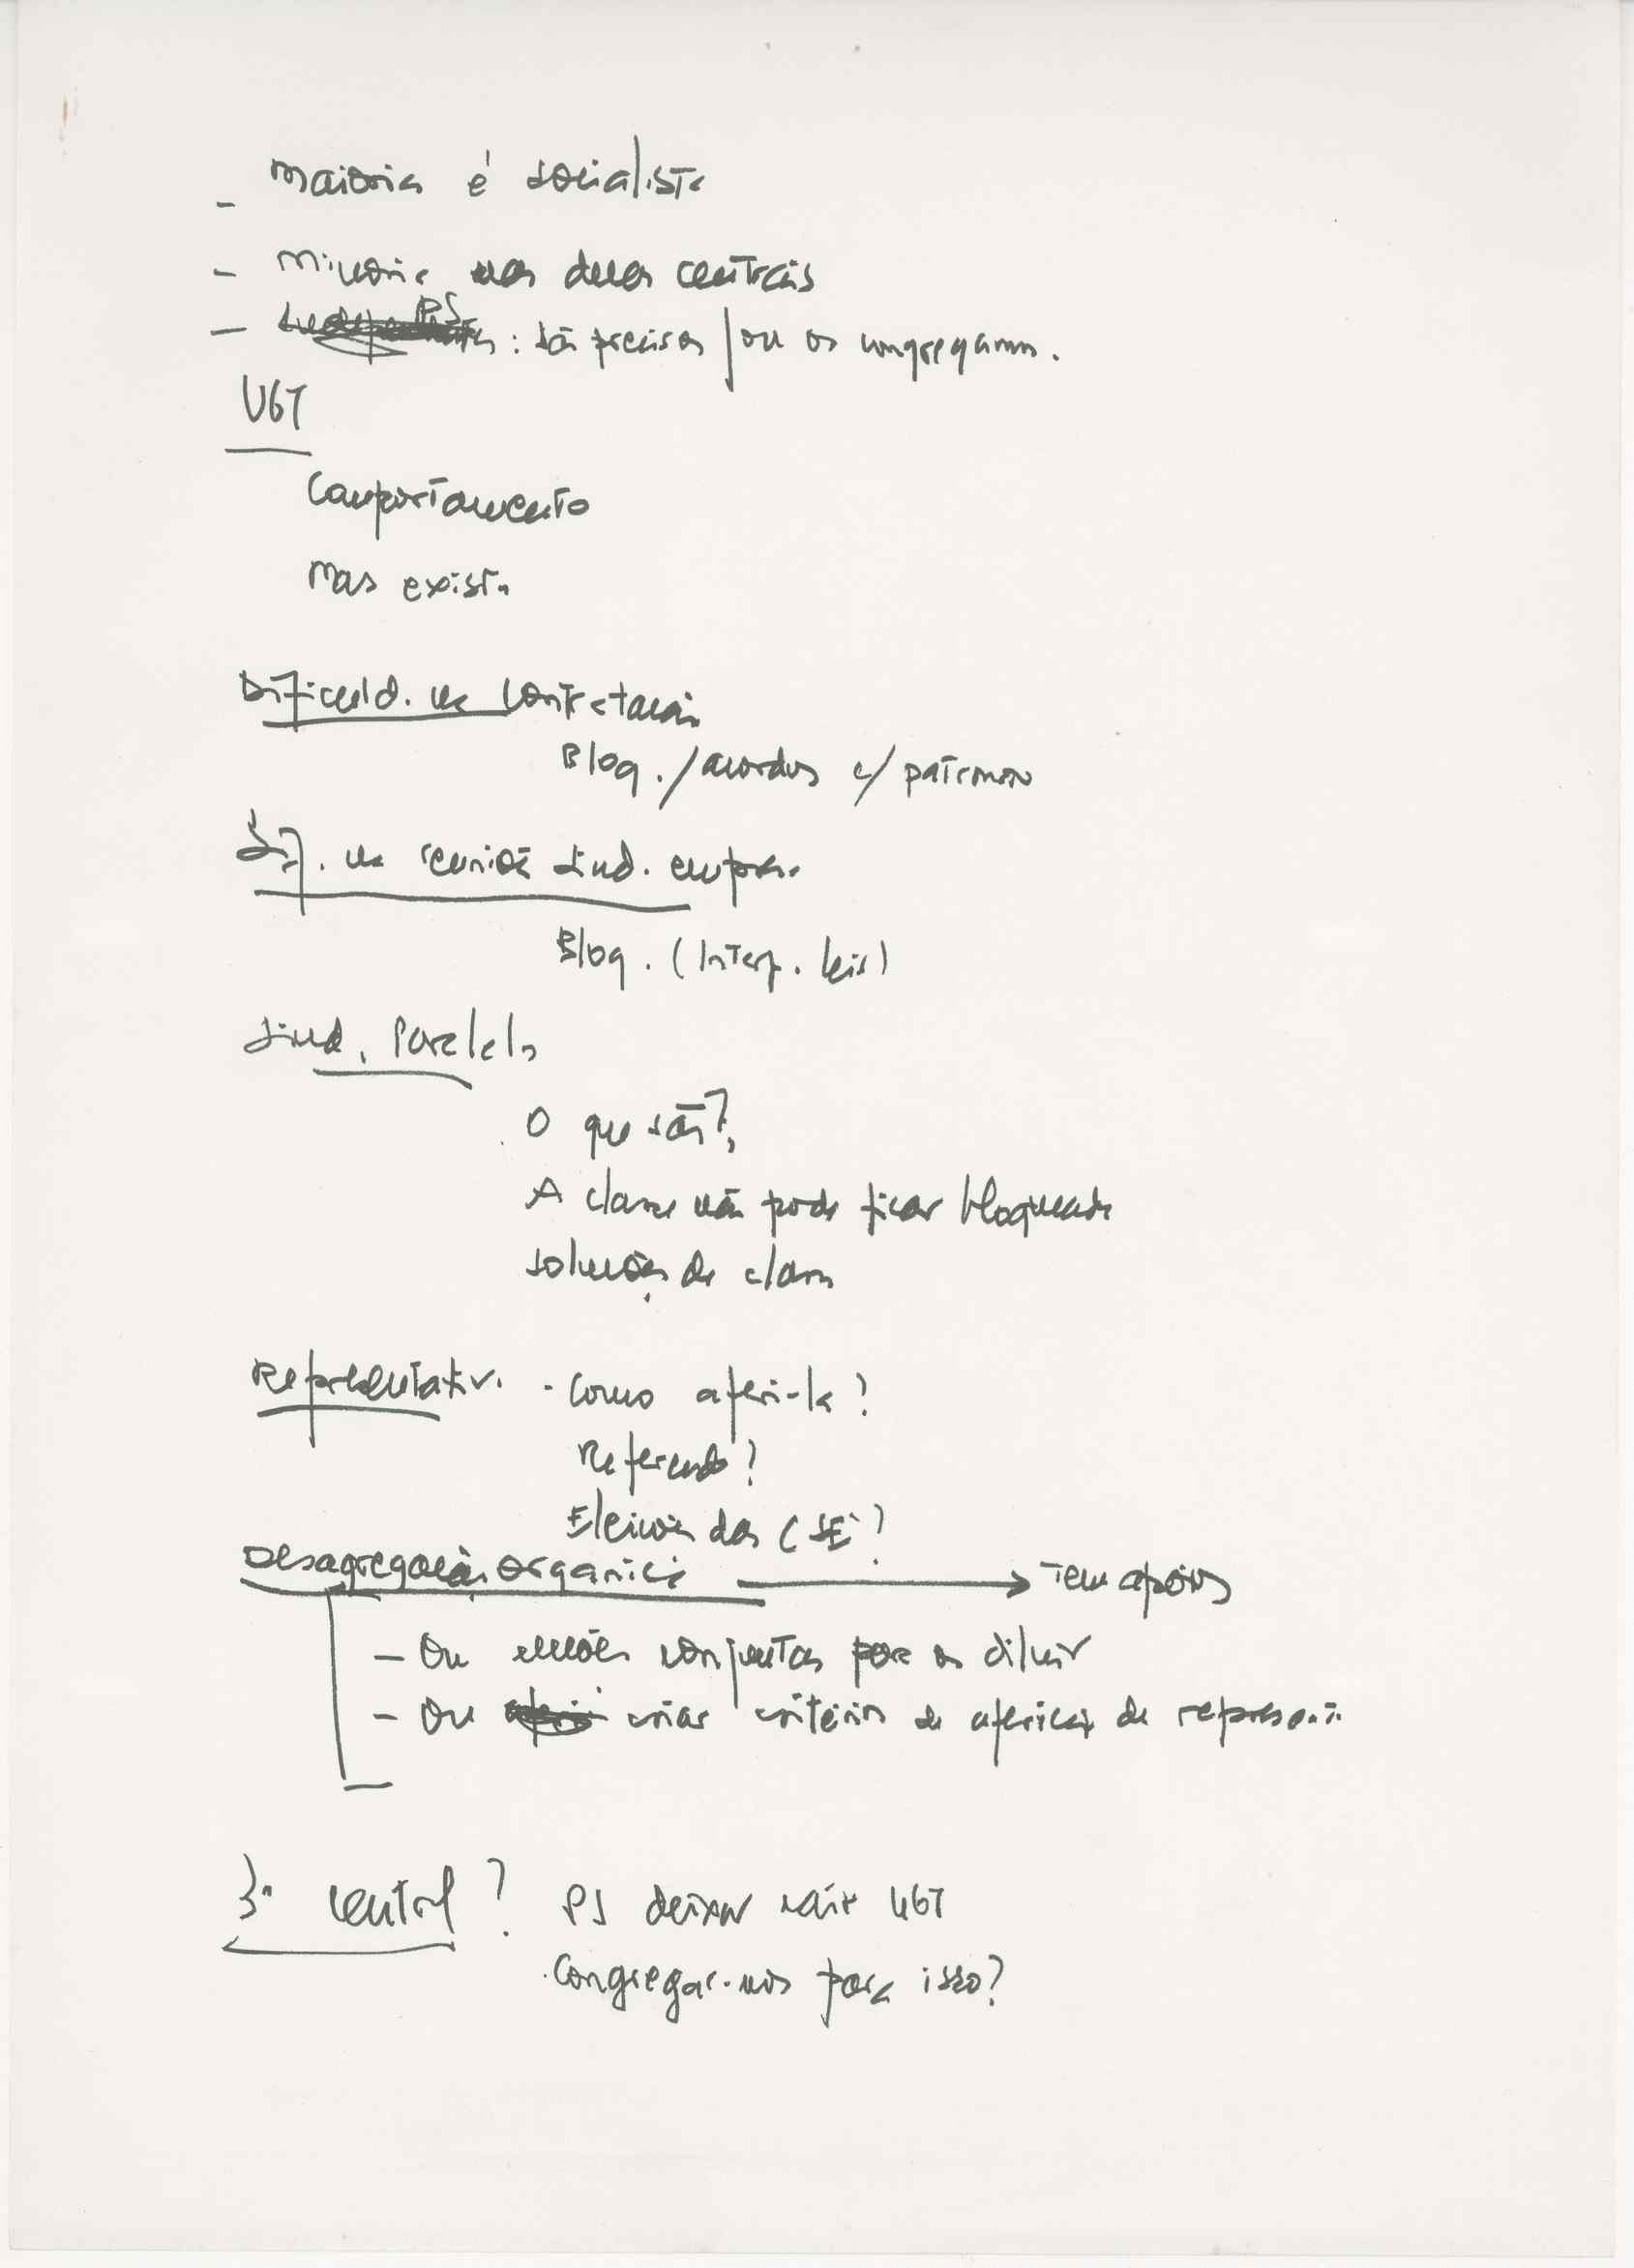 - Maioria é socialista
- Minoria nas duas centrais
- : são precisos / ou os congregamos.
UGT
Comportamento
Mas exist
Dificuld. na Contratação
Bloq. / acordos c/ patronato
Dif. na reunião sind. empres.
Bloq. (Interp. leis)
Sind. Paralelos
O que são?
A classe não pode ficar bloqueada
soluções de classe
Representativ. - Como aferi-la?
Referendo?
Eleição das CSE?
Desagregação orgânica → Tem apoios
- Ou conjuntas para os diluir
- Ou criar critérios de aferição de represent.
3ª Central? PS deixar cair UGT
Congregar-nos para isso?